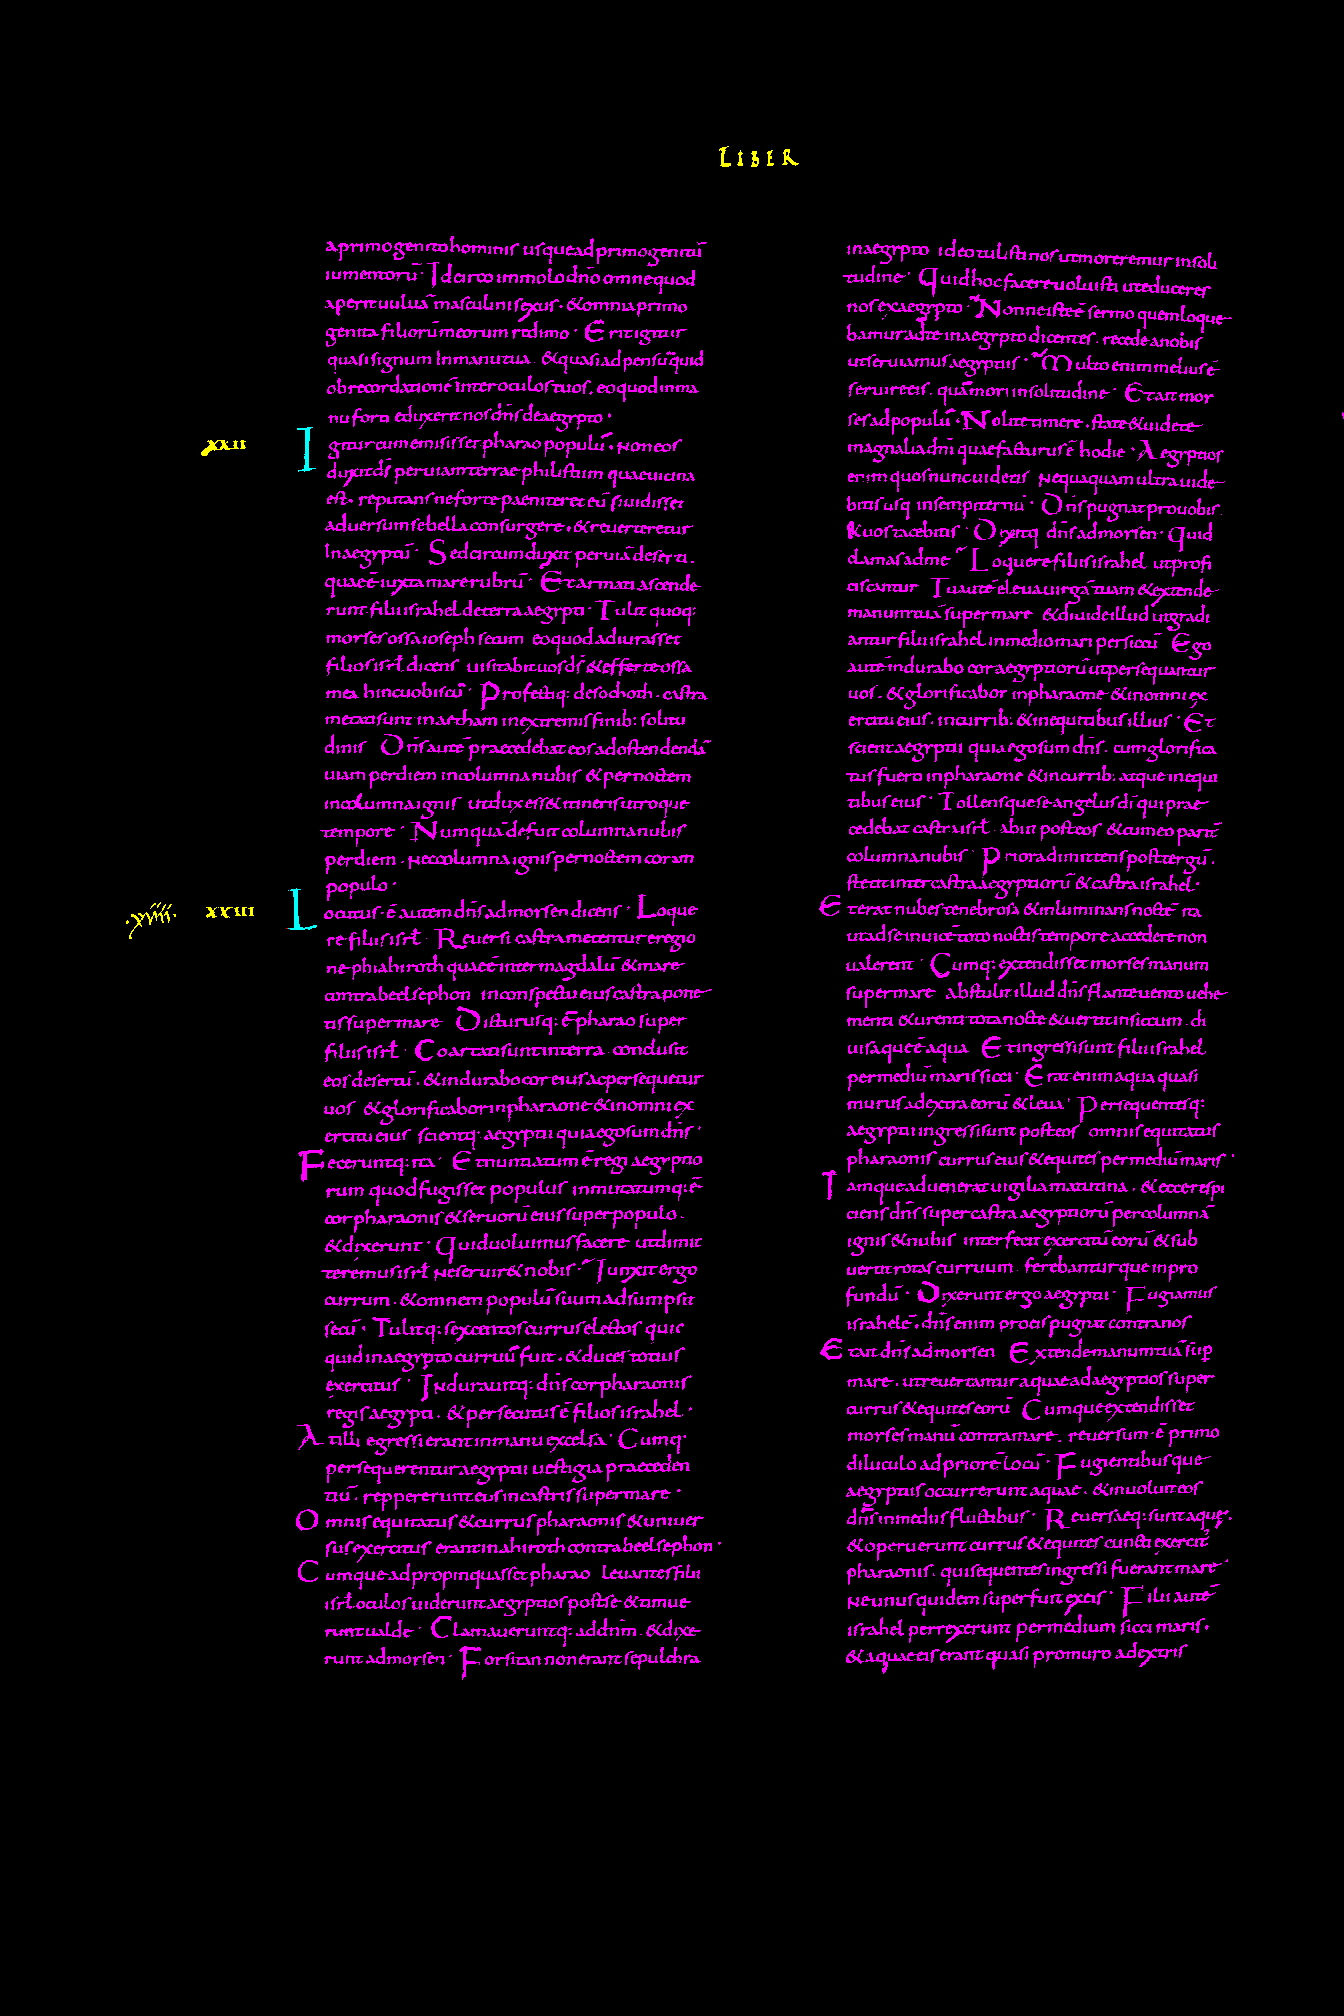 LIBER
aprimogenito hominis usque ad primogenitū
iumentorū · Idcirco immolo dn̄o omne quod
aperit uuluā masculini sexus · & omnia primo
genita filiorū meorum redimo · Erit igitur
quasi signum In manu tua · & quasi ad pensū quid
ob recordationē Inter oculos tuos · eo quod in ma
nu forti eduxerit nos dn̄s de aegypto ·
xxii
Igitur cum emisisset pharao populū · Non eos
duxit ds̄ per uiam terrae philistiim quae uicina
est · reputans ne forte paeniteret eū si uidisset
aduersum se bella consurgere · & reuerteretur
In aegyptū · Sed circumduxit per uiā deserti ·
quae ē iuxta mare rubrū · Et armati ascende
runt filii israhel de terra aegypti · Tulit quoq:
morses ossa ioseph secum eo quod adiurasset
filios isrl̄ dicens uisitabit uos ds̄ & efferte ossa
mea hinc uobiscū · Profectiq: de sochoth · castra
metati sunt in aetham in extremis finib: solitu
dinis Dn̄s autē praecedebat eos ad ostendendā
uiam per diem in columna nubis & per noctem
in columna ignis ut dux ess& itineris utroque
tempore · Numquā defuit columna nubis
per diem · Nec columna ignis per noctem coram
populo ·
xxiii
Locutus · ē autem dn̄s ad morsen dicens · Loque
re filiis isrl̄ · Reuersi castrametentur e regio
ne phiahiroth quae ē inter magdalū & mare
contra beelsephon in conspectu eius castra pone
tis super mare Dicturusq: ē pharao super
filiis isrl̄ Coartati sunt in terra conclusit
eos desertū · & indurabo cor eius ac persequetur
uos & glorificabor in pharaone & in omni ex
ercitu eius scientq: aegyptii quia ego sum dn̄s ·
Feceruntq: ita · Et nuntiatum ē regi aegyptio
rum quod fugisset populus inmutatumq: ē
cor pharaonis & seruorū eius super populo ·
& dixerunt · Quid uoluimus facere ut dimit
teremus isrl̄ Ne seruir& nobis · Iunxit ergo
currum · & omnem populū suum adsumpsit
secū · Tulitq: sexcentos currus electos quic
quid in aegypto curruū fuit · & duces totius
exercitus · Indurauitq: dn̄s cor pharaonis
regis aegypti · & persecutus ē filios israhel ·
At illi egressi erant in manu excelsa · Cumq·
persequerentur aegyptii uestigia praeceden
tiū · reppererunt eos in castris super mare ·
Omnis equitatus & currus pharaonis & uniuer
sus exercitus erant in ahiroth contra beelsephon ·
Cumque adpropinquasset pharao leuantes filii
isrl̄ oculos uiderunt aegyptios post se & timue
runt ualde · Clamaueruntq: ad dn̄m · & dixe
runt ad morsen · Forsitan non erant sepulchra
in aegypto ideo tulisti nos ut moreremur in soli
tudine · Quid hoc facere uoluisti ut educeres
nos ex aegypto · Nonne iste ē sermo quem loque
bamur ad te in aegypto dicentes · recede a nobis
ut seruiamus aegyptiis · Multo enim melius ē
seruire eis · quā mori in solitudine · Et ait mor
ses ad populū · Nolite timere · state & uidete
magnalia dn̄i quae facturus ē hodie · Aegyptios
enim quos nunc uidetis Nequaquam ultra uide
bitis usq in sempiternū · Dn̄s pugnat pro uobis
& uos tacebitis · Dixitq dn̄s ad morsen · Quid
clamas ad me Loquere filiis israhel ut profi
ciscantur Tu autē eleua uirgā tuam & extende
manum tuā super mare & diuide illud ut gradi
antur filii israhel in medio mari per siccū Ego
autē indurabo cor aegyptiorū ut persequantur
uos · & glorificabor in pharaone & in omni ex
ercitu eius · in currib: & in equitibus illius · Et
scient aegyptii quia ego sum dn̄s · cum glorifica
tus fuero in pharaone & in currib · atque in equi
tibus eius · Tollensque se angelus dī qui prae
cedebat castra isrl̄ · abiit post eos & cum eo paritē
columna nubis · Priora dimittens post tergū ·
stetit inter castra aegyptiorū & castra israhel ·
Et erat nubes tenebrosa & inluminans noctē ita
ut ad se inuicē toto noctis tempore accedere non
ualerent · Cumq: extendisset morses manum
super mare abstulit illud dn̄s flante uento uehe
menti & urenti tota nocte & uertit in siccum · di
uisaque ē aqua Et ingressi sunt filii israhel
per mediū maris sicci · Erat enim aqua quasi
murus a dextra eorū & leua · Persequentesq:
aegyptii ingressi sunt post eos omnis equitatus
pharaonis currus eius & equites per mediū maris ·
Iamque aduenerat uigilia matutina · & ecce respi
ciens dn̄s super castra aegyptiorū per columnā
ignis & nubis interfecit exercitū eorū & sub
uertit rotas curruum ferebanturque in pro
fundū · Dixerunt ergo aegyptii · Fugiamus
israhelē · dn̄s enim pro eis pugnat contra nos
Et ait dn̄s ad morsen Extende manum tuā sup̄
mare · ut reuertantur aquae ad aegyptios super
currus & equites eorū Cumque extendisset
morses manū contra mare · reuersum · ē primo
diluculo ad priorē locū · Fugientibusque
aegyptiis occurrerunt aquae · & inuoluit eos
dn̄s in mediis fluctibus · Reuersaeq: sunt aquę ·
& operuerunt currus & equites cuncti exercit'
pharaonis · qui sequentes ingressi fuerant mare ·
Ne unus quidem superfuit ex eis · Filii autē
israhel perrexerunt per medium sicci maris ·
& aquae eis erant quasi pro muro a dextris